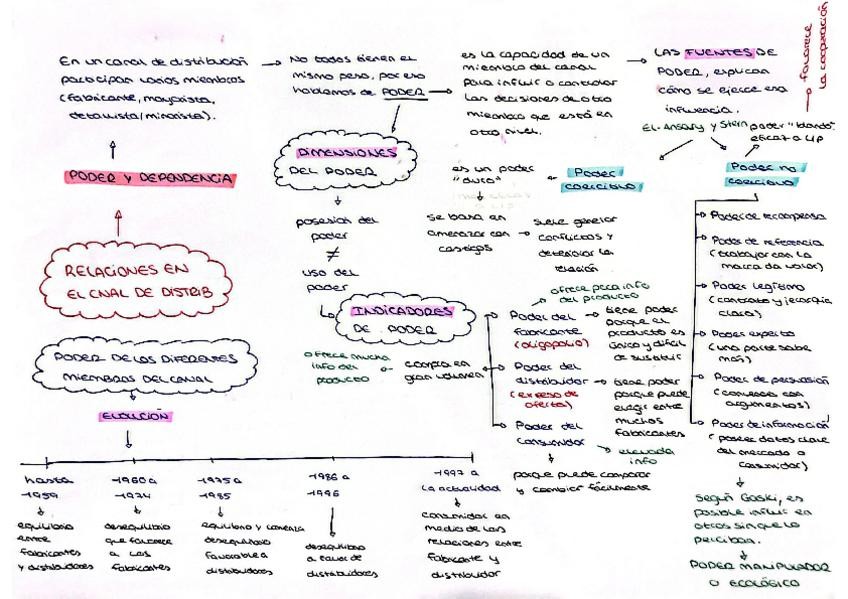 En un canal de distribución
participan varios miembros
(fabricante, mayorista,
detallista/minorista).
No todos tienen el
mismo peso, por eso
hablamos de PODER
es la capacidad de un
miembro del canal
para influir o controlar
las decisiones de otro
miembro que está en
otro nivel.
LAS FUENTES DE
PODER, explican
cómo se ejerce esa
influencia.
El-Ansary y Stern
poder "blando"
eficaz a L/P
favorece
la cooperación
PODER Y DEPENDENCIA
RELACIONES EN
EL CNAL DE DISTRIB
DIMENSIONES
DEL PODER
posesión del
poder
≠
uso del
poder
Poder
coercitivo
es un poder
"duro"
se basa en
amenazar con
castigos
suele generar
conflictos y
deteriorar la
relación
Poder no
coercitivo
Poder de recompensa
Poder de referencia
(trabajar con la
marca da valor)
Poder legítimo
(contrato y jerarquía
clara)
Poder experto
(una parte sabe
más)
Poder de persuasión
(convences con
argumentos)
Poder de información
(poseer datos clave
del mercado o
consumidor)
Según Gaski, es
posible influir en
otros sin que lo
perciban.
PODER MANIPULADOR
O ECOLÓGICO
INDICADORES
DE PODER
ofrece poca info
del producto
Poder del
fabricante
(oligopolio)
tiene poder
porque el
producto es
único y difícil
de sustituir
Poder del
distribuidor
(exceso de
oferta)
tiene poder
porque puede
elegir entre
muchos
fabricantes
compra en
gran volumen
ofrece mucha
info del
producto
Poder del
consumidor
elevada
info
porque puede comparar
y cambiar fácilmente
PODER DE LOS DIFERENTES
MIEMBROS DEL CANAL
EVOLUCIÓN
hasta
1959
equilibrio
entre
fabricantes
y distribuidores
1960 a
1974
desequilibrio
que favorece
a los
fabricantes
1975 a
1985
equilibrio y comienza
desequilibrio
favorable a
distribuidores
1986 a
1996
desequilibrio
a favor de
distribuidores
1997 a
la actualidad
consumidor en
medio de las
relaciones entre
fabricante y
distribuidor